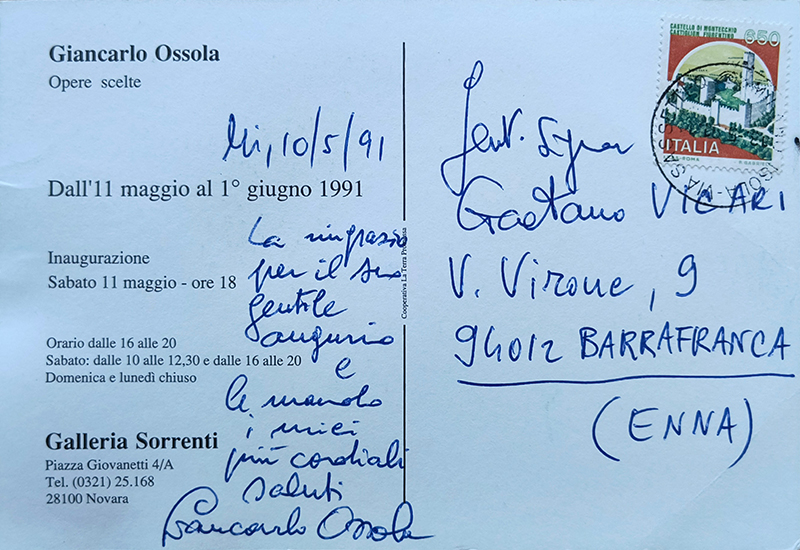 Giancarlo Ossola
Opere scelte
Mi, 10/5/91
Dall'11 maggio al 1° giugno 1991
La ringrazio
per il suo
gentile
augurio
e
le mando
i miei
più cordiali
saluti
Giancarlo Ossola
Inaugurazione
Sabato 11 maggio - ore 18
Orario dalle 16 alle 20
Sabato: dalle 10 alle 12,30 e dalle 16 alle 20
Domenica e lunedì chiuso
Galleria Sorrenti
Piazza Giovanetti 4/A
Tel. (0321) 25.168
28100 Novara
Cooperativa La Terra Promessa
CASTELLO DI MONTECCHIO
CASTIGLION FIORENTINO
650
ITALIA
Gent. Signor
Gaetano VICARI
V. Virone, 9
94012 BARRAFRANCA
(ENNA)